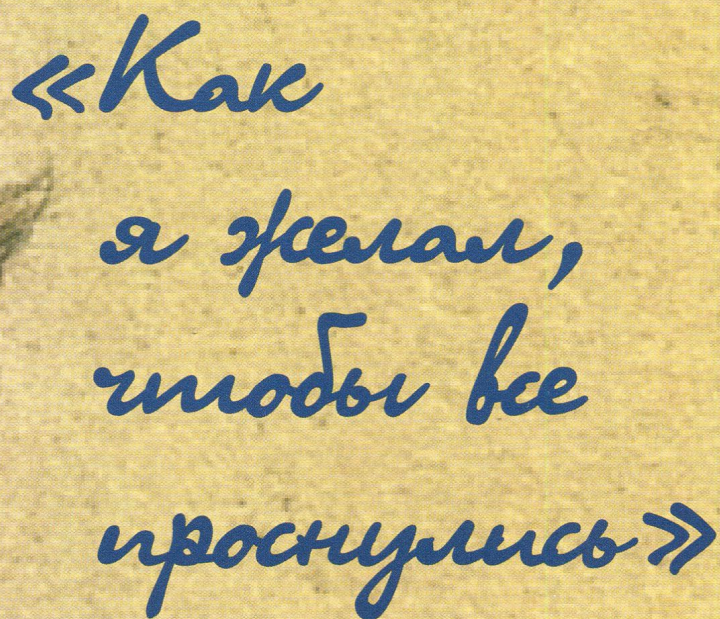 «Как
я желал,
чтобы все
проснулись»